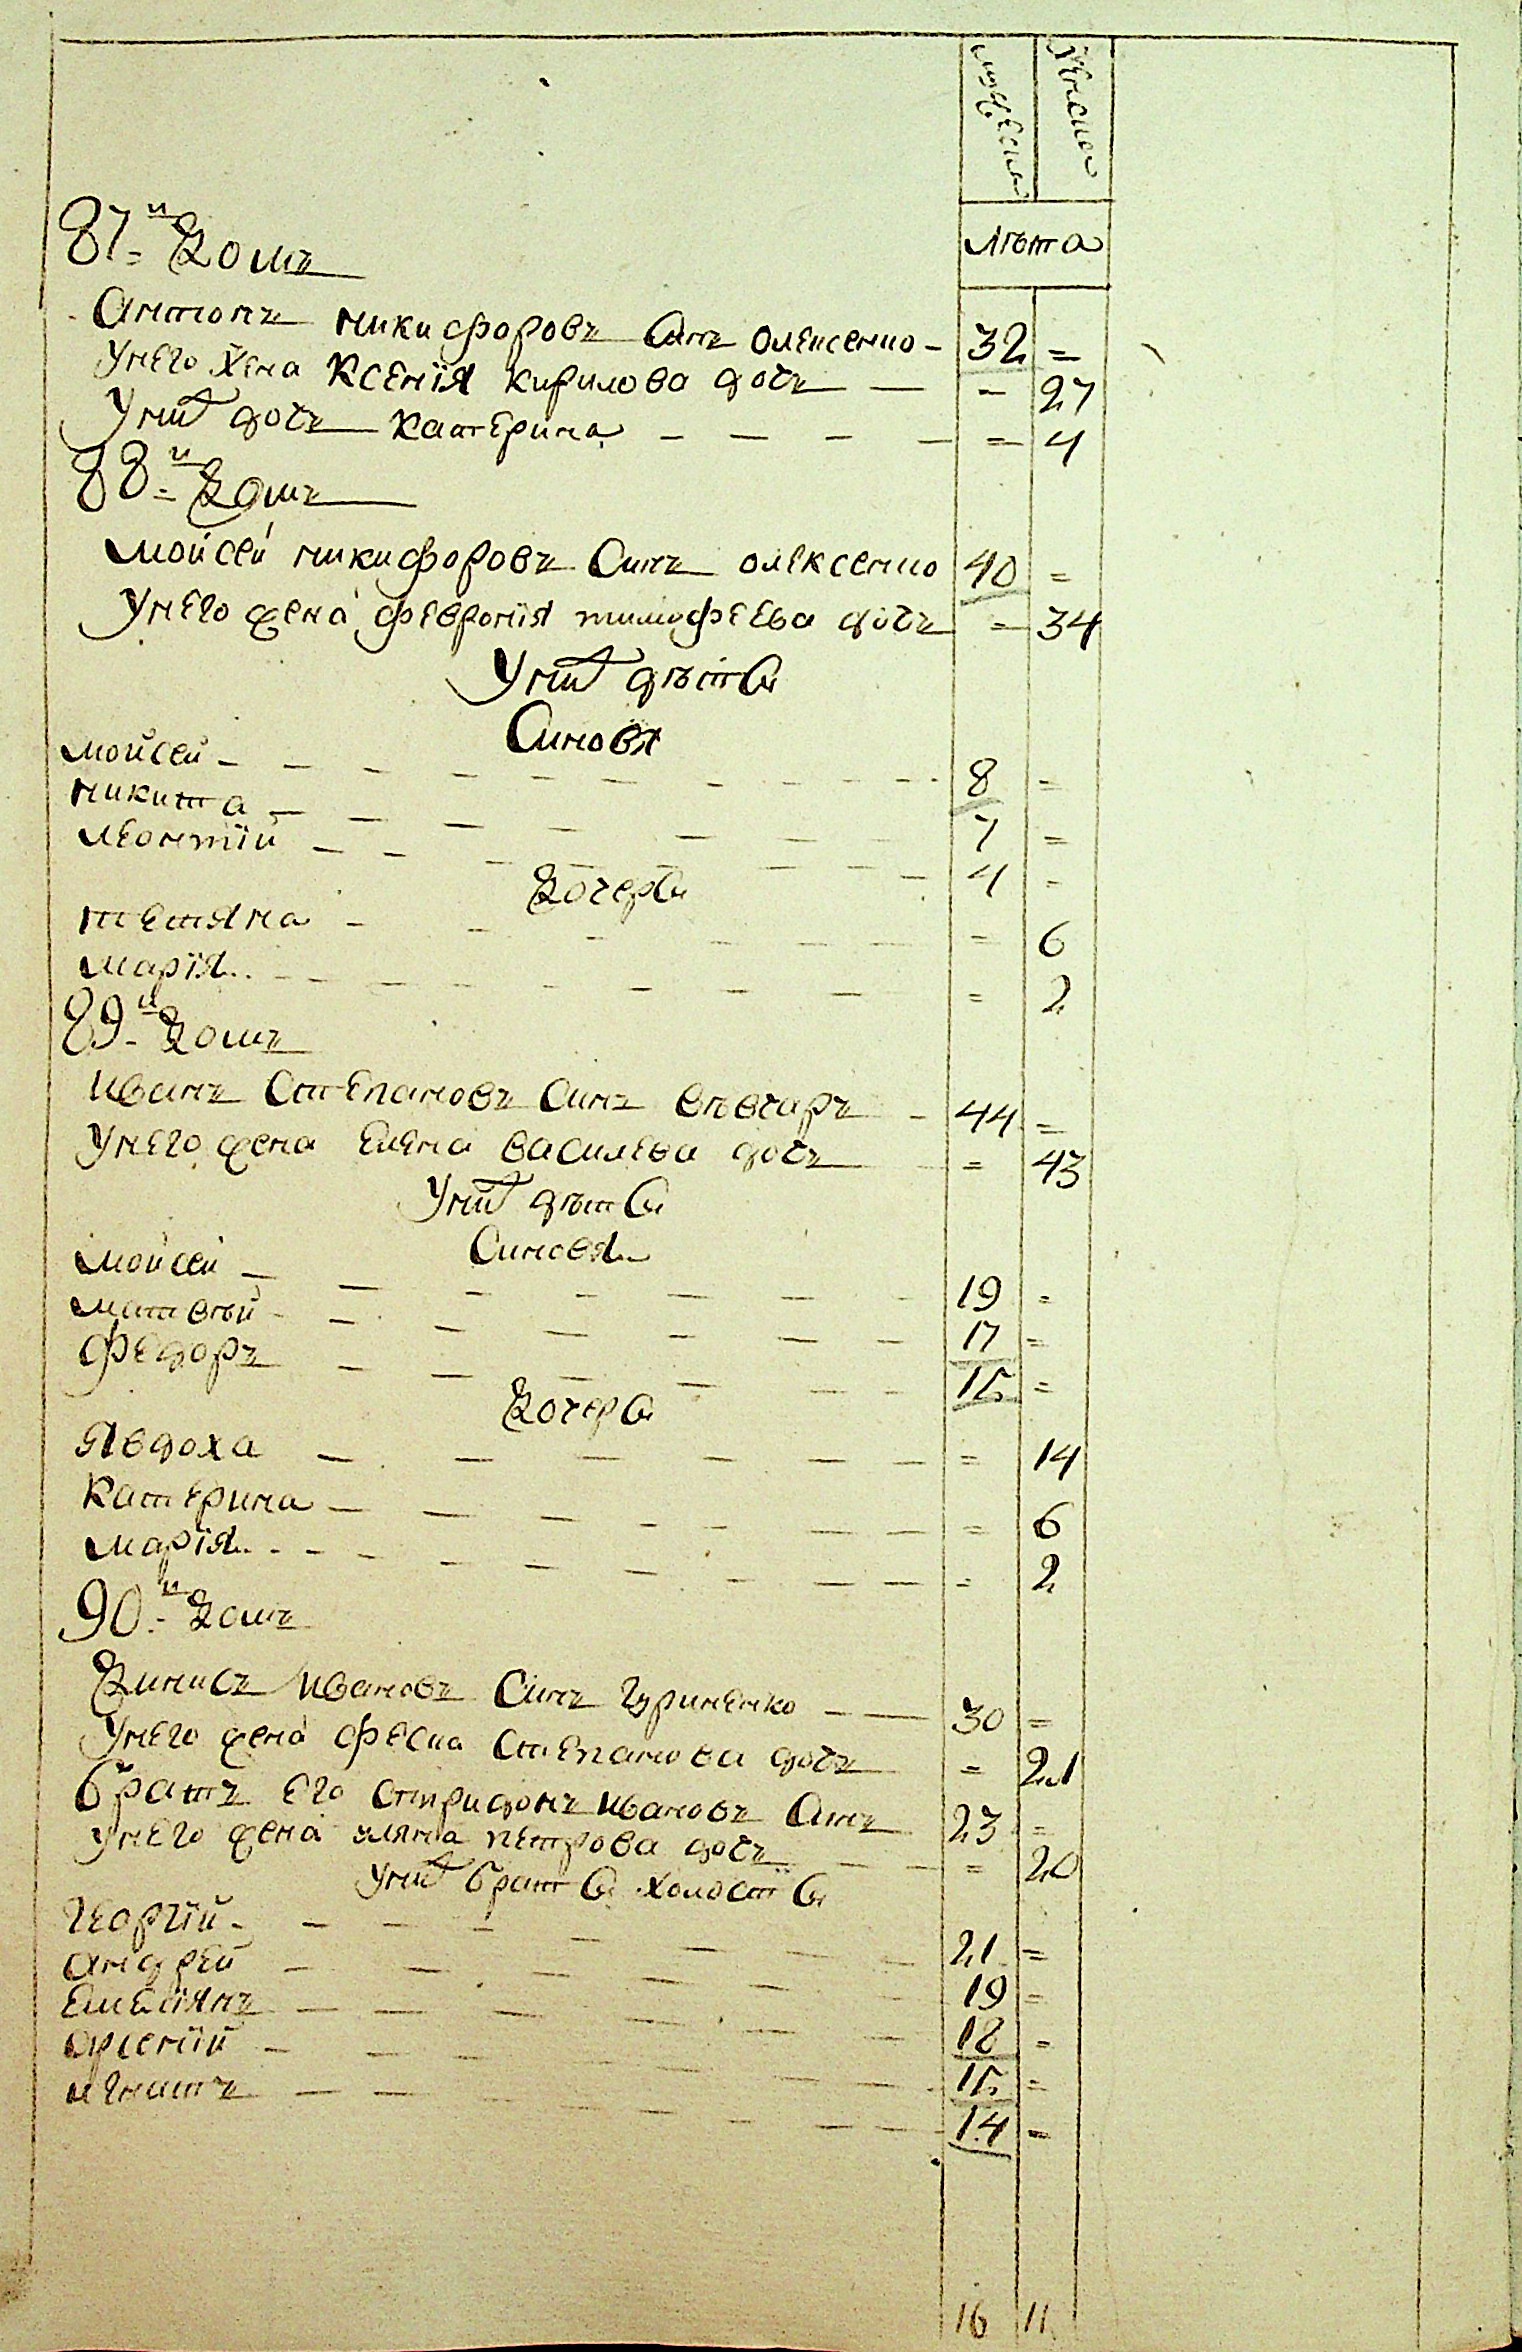 мужеска женска
лѣта
87-й Домъ
Антонъ никифоровъ Синъ олексенко - 32 =
Унего жена Ксенїя кирилова дочь — = 27
Унихъ дочь катерина - - - - = 4
88-й Домъ
мойсей никифоровъ Синъ олексенко 40 =
Унего жена февронїя тимофеева дочь = 34
Унихъ дѣти
Синовя
мойсей - - - 8 =
никита - - - 7 =
леонтїй - - - 4 =
Дочери
тетяна - - - = 6
марїя - - - = 2
89-й Домъ
иванъ Степановъ Синъ вѣвчаръ - 44 =
Унего жена Елена василева дочь = 43
Унихъ дѣти
Синовя
мойсей - - - 19 =
матвѣй - - - 17 =
федоръ - - - 15 =
Дочери
явдоха - - - = 14
катерина - - - = 6
марїя - - - = 2
90-й Домъ
Динисъ ивановъ Синъ гуриненко - — 30 =
Унего жена феска Степанова дочь = 21
братъ его спиридонъ ивановъ Синъ 23 =
унего жена уляна петрова дочь - - = 20
Унихъ брати холостїи
георгїй - - - 21 =
андрей - - - 19 =
Емелїянъ - - - 18 =
арсенїй - - - 15 =
игнатъ - - - 14 =
16 11